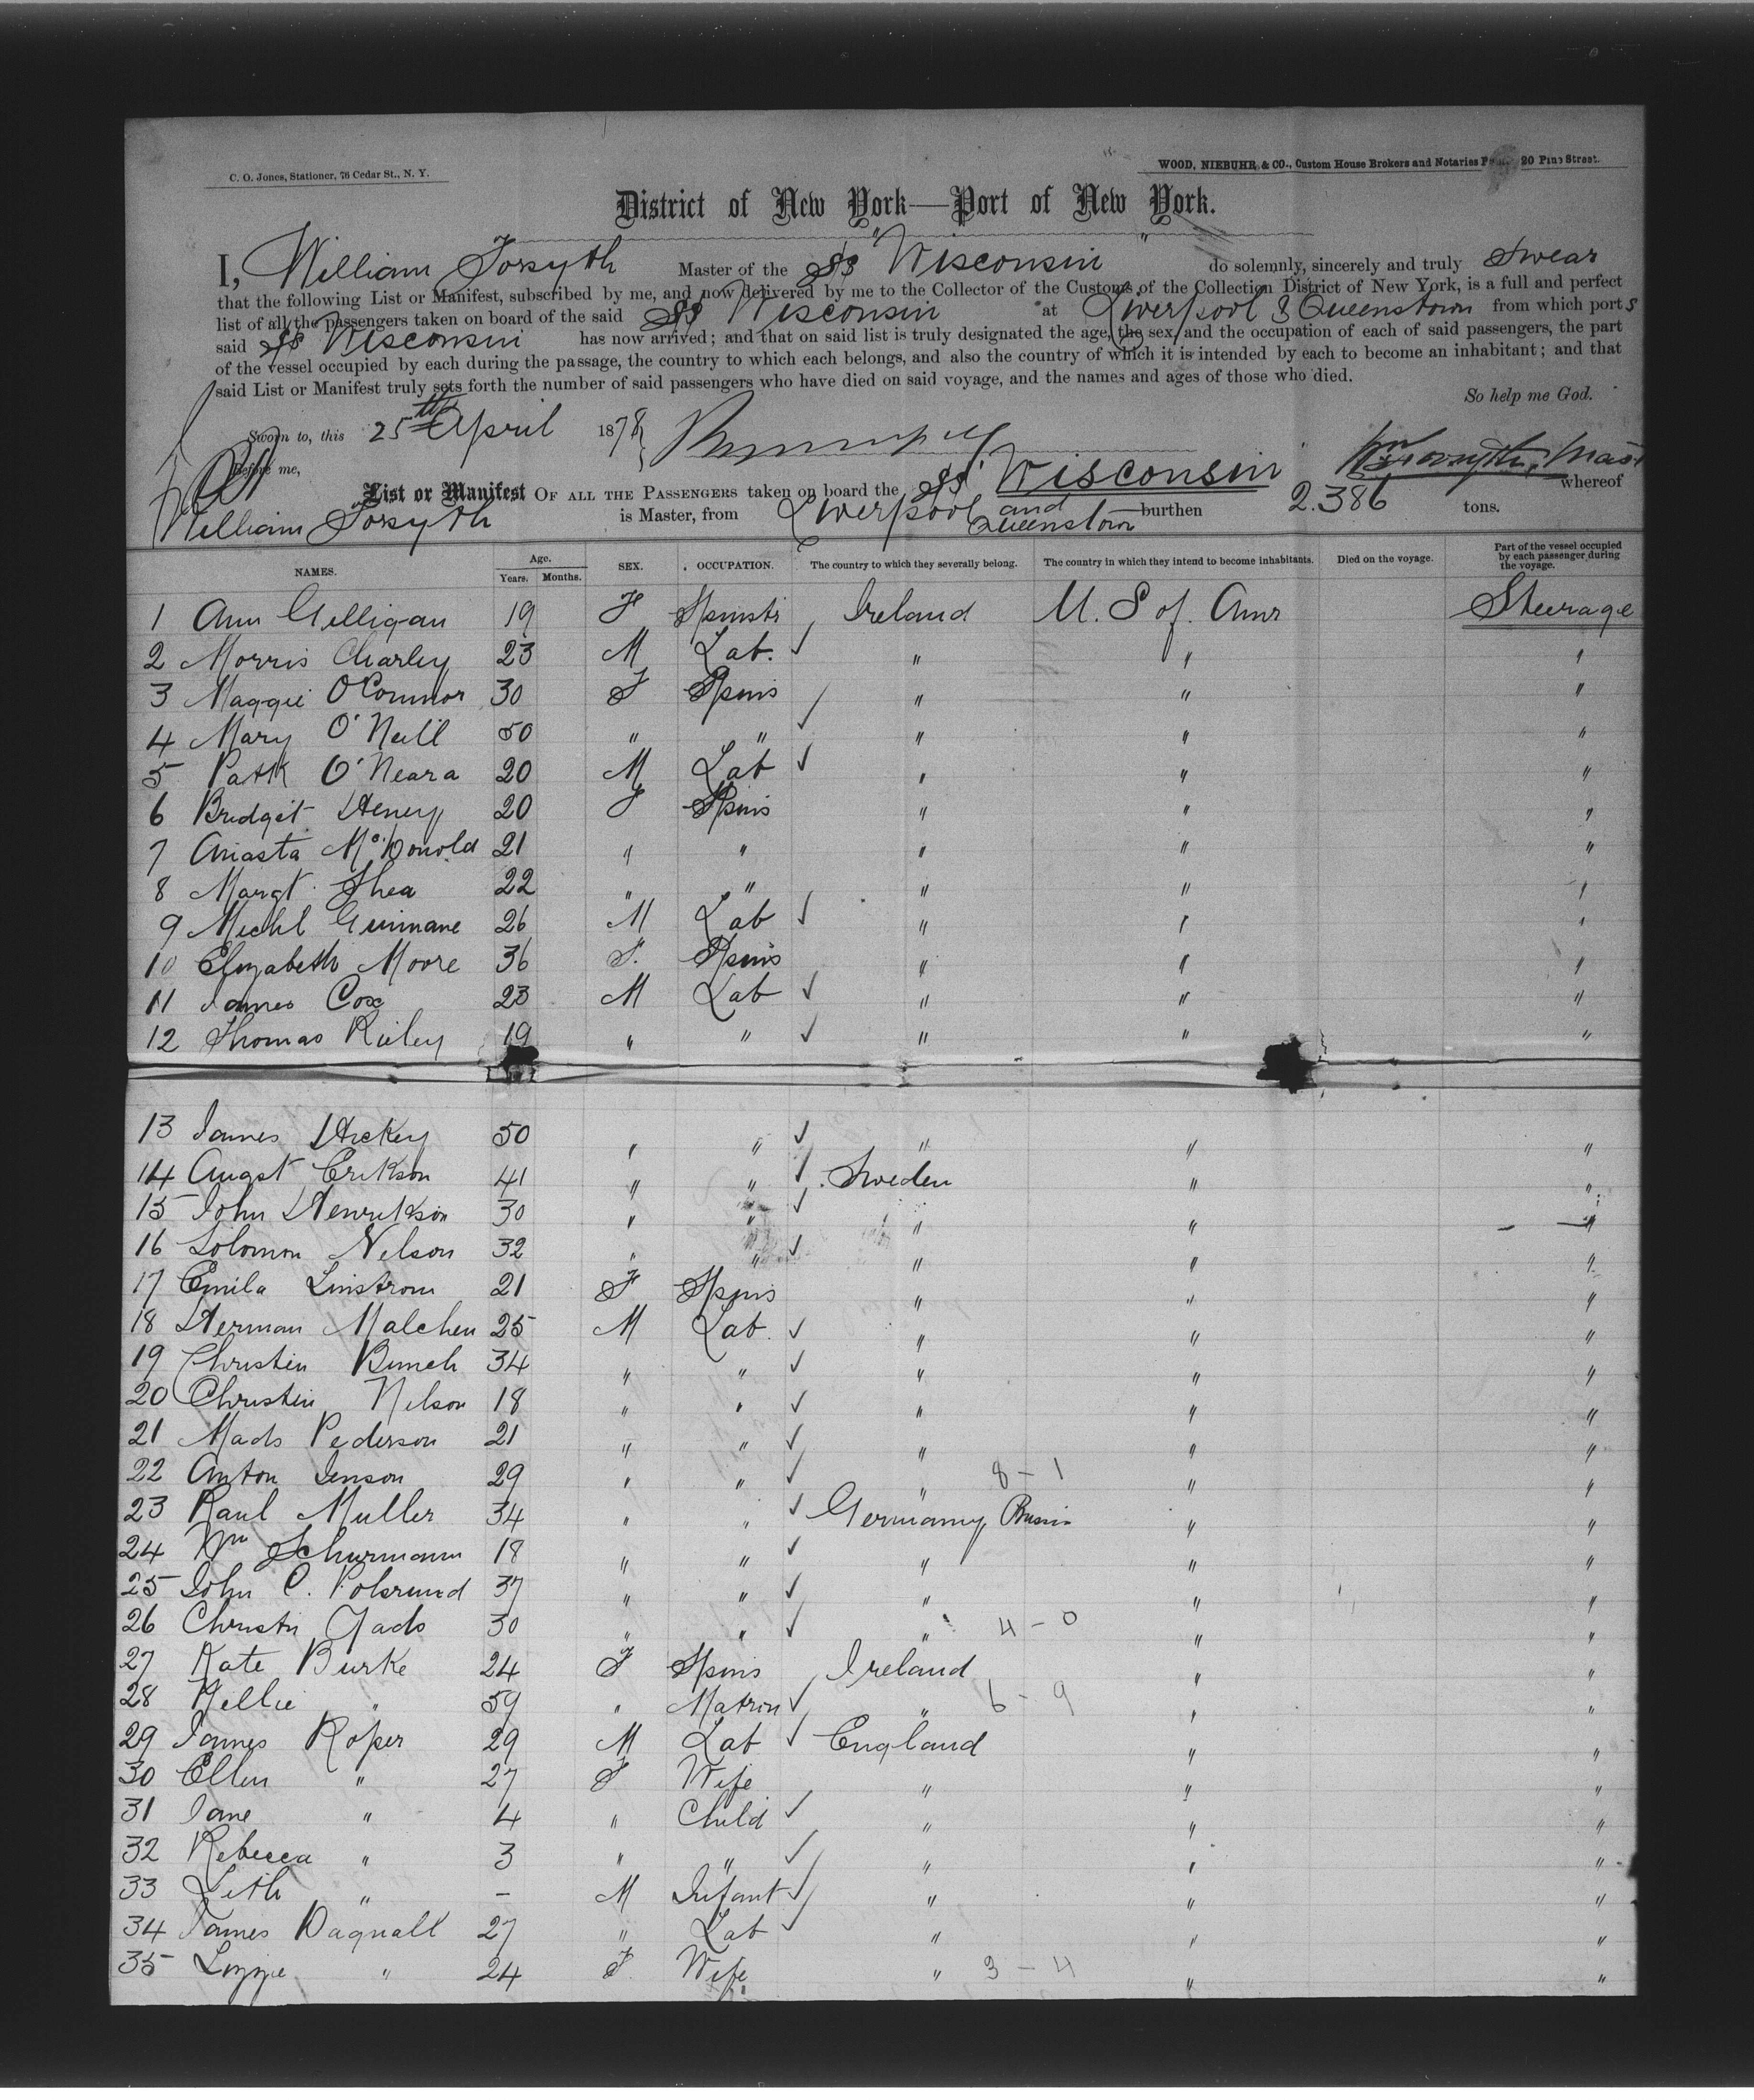 C. O. Jones, Stationer, 76 Cedar St., N. Y.
WOOD, NIEBUHR & CO., Custom House Brokers and Notaries 20 Pine Street.
District of New York—Port of New York.
I, William Forsyth Master of the SS "Wisconsin" do solemnly, sincerely and truly Swear
that the following List or Manifest, subscribed by me, and now delivered by me to the Collector of the Customs of the Collection District of New York, is a full and perfect
list of all the passengers taken on board of the said SS Wisconsin at Liverpool & Queenstown from which ports
said SS Wisconsin has now arrived; and that on said list is truly designated the age, the sex, and the occupation of each of said passengers, the part
of the vessel occupied by each during the passage, the country to which each belongs, and also the country of which it is intended by each to become an inhabitant; and that
said List or Manifest truly sets forth the number of said passengers who have died on said voyage, and the names and ages of those who died.
So help me God.
Sworn to, this 25th April 1878
Before me,
Wm Forsyth, Mas
List or Manifest OF ALL THE PASSENGERS taken on board the SS Wisconsin whereof
William Forsyth is Master, from Liverpool and Queenstown burthen 2.386 tons.
NAMES. Age. Years. Months. SEX. OCCUPATION. The country to which they severally belong. The country in which they intend to become inhabitants. Died on the voyage. Part of the vessel occupied by each passenger during the voyage.
1 Ann Gilligan 19 F Spinstr Ireland U. S of. Amr Steerage
2 Morris Charley 23 M Lab. " " "
3 Maggie O'Connor 30 F Spins " " "
4 Mary O'Neill 50 " " " " "
5 Patk O'Neara 20 M Lab " " "
6 Bridget Heney 20 F Spins " " "
7 Aniasta McDonold 21 " " " " "
8 Margt. Shea 22 " " " " "
9 Michl Guinnane 26 M Lab " " "
10 Elizabeth Moore 36 F. Spins " " "
11 James Cox 23 M Lab " " "
12 Thomas Rieley 19 " " " " "
13 James Hickey 50 " " " " "
14 Augst Erikson 41 " " Sweden " "
15 John Henrikson 30 " " " " "
16 Solomon Nelson 32 " " " " "
17 Emila Linstrom 21 F Spins " " "
18 Herman Malchen 25 M Lab. " " "
19 Christin Bunch 34 " " " " "
20 Christin Nelson 18 " " " " "
21 Mads Pederson 21 " " " " "
22 Anton Jenson 29 " " " 8 - 1 " "
23 Raul Muller 34 " " Germany " "
24 Wm Schurmann 18 " " " " "
25 John C. Polsrund 37 " " " " "
26 Christn Gads 30 " " " 4 - 0 " "
27 Kate Burke 24 F Spins Ireland " "
28 Nellie " 59 " Matron " 6 - 9 " "
29 James Roper 29 M Lab England " "
30 Ellen " 27 F Wife " " "
31 Jane " 4 " Child " " "
32 Rebecca " 3 " " " " "
33 Leth " - M Infant " " "
34 James Dagnall 27 " Lab " " "
35 Lizzie " 24 F. Wife " 3 - 4 " "